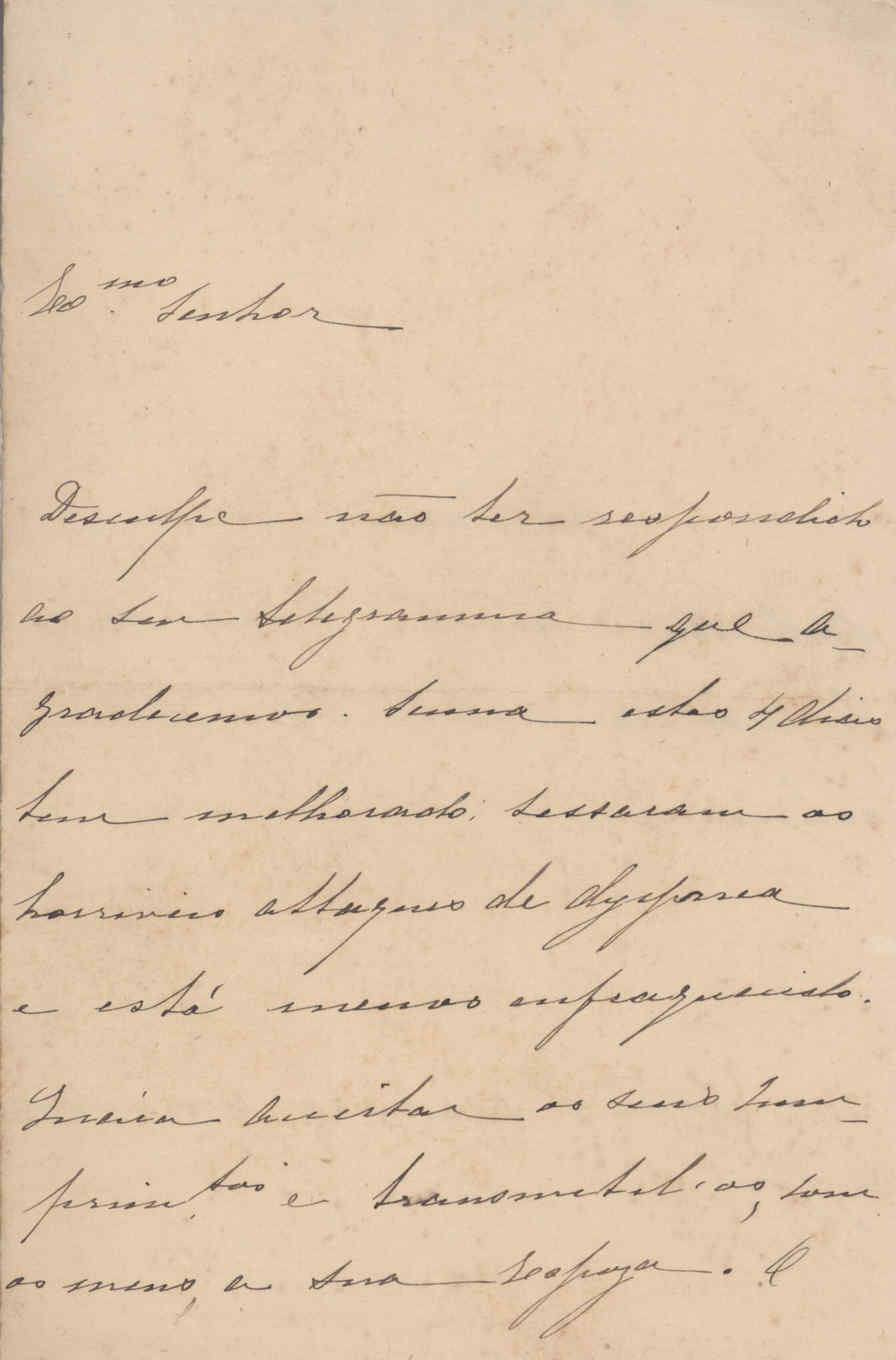 Ex.mo Senhor
Desculpe não ter respondido
ao seu telegramma que a-
gradecemos. estes 4 dias
tem melhorado; cessaram os
horriveis attaques de dyspnea
e está menos enfraquecido.
Queira aceitar os seus cum-
prim.tos e transmetil-os, com
os meus, a sua Espoza. O